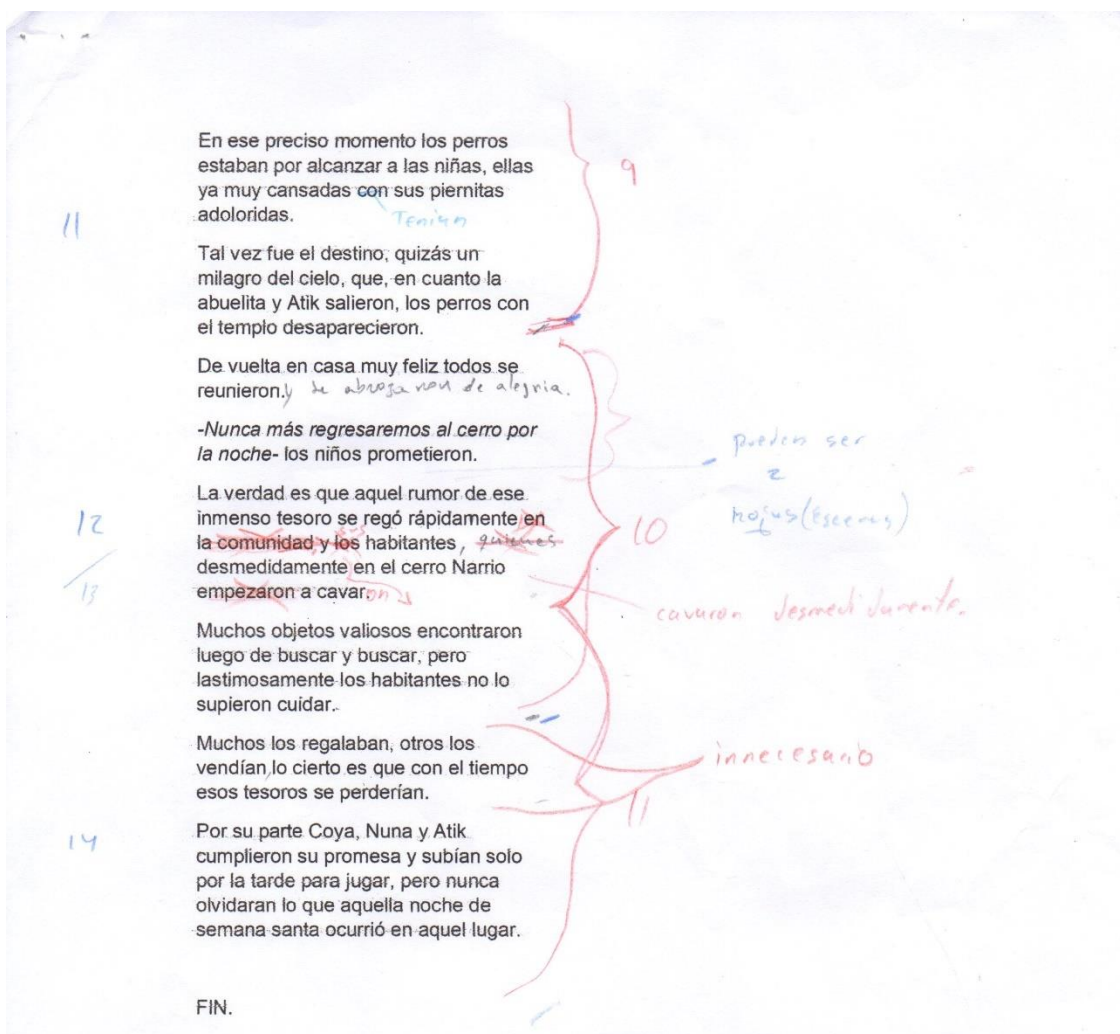 En ese preciso momento los perros
estaban por alcanzar a las niñas, ellas
9
ya muy cansadas con sus piernitas
adoloridas.
Tenian
11
Tal vez fue el destino, quizás un
milagro del cielo, que, en cuanto la
abuelita y Atik salieron, los perros con
el templo desaparecieron.
De vuelta en casa muy feliz todos se
reunieron. y se abrazaron de alegria.
-Nunca más regresaremos al cerro por
la noche- los niños prometieron.
pueden ser
2
hojas (Escenas)
La verdad es que aquel rumor de ese
inmenso tesoro se regó rápidamente en
12
sus
la comunidad y los habitantes, quienes
10
desmedidamente en el cerro Narrio
13
empezaron a cavar. on
cavaron desmedidamente.
Muchos objetos valiosos encontraron
luego de buscar y buscar, pero
lastimosamente los habitantes no lo
supieron cuidar.
Muchos los regalaban, otros los
vendían, lo cierto es que con el tiempo
innecesario
esos tesoros se perderían.
11
Por su parte Coya, Nuna y Atik
14
cumplieron su promesa y subían solo
por la tarde para jugar, pero nunca
olvidaran lo que aquella noche de
semana santa ocurrió en aquel lugar.
FIN.